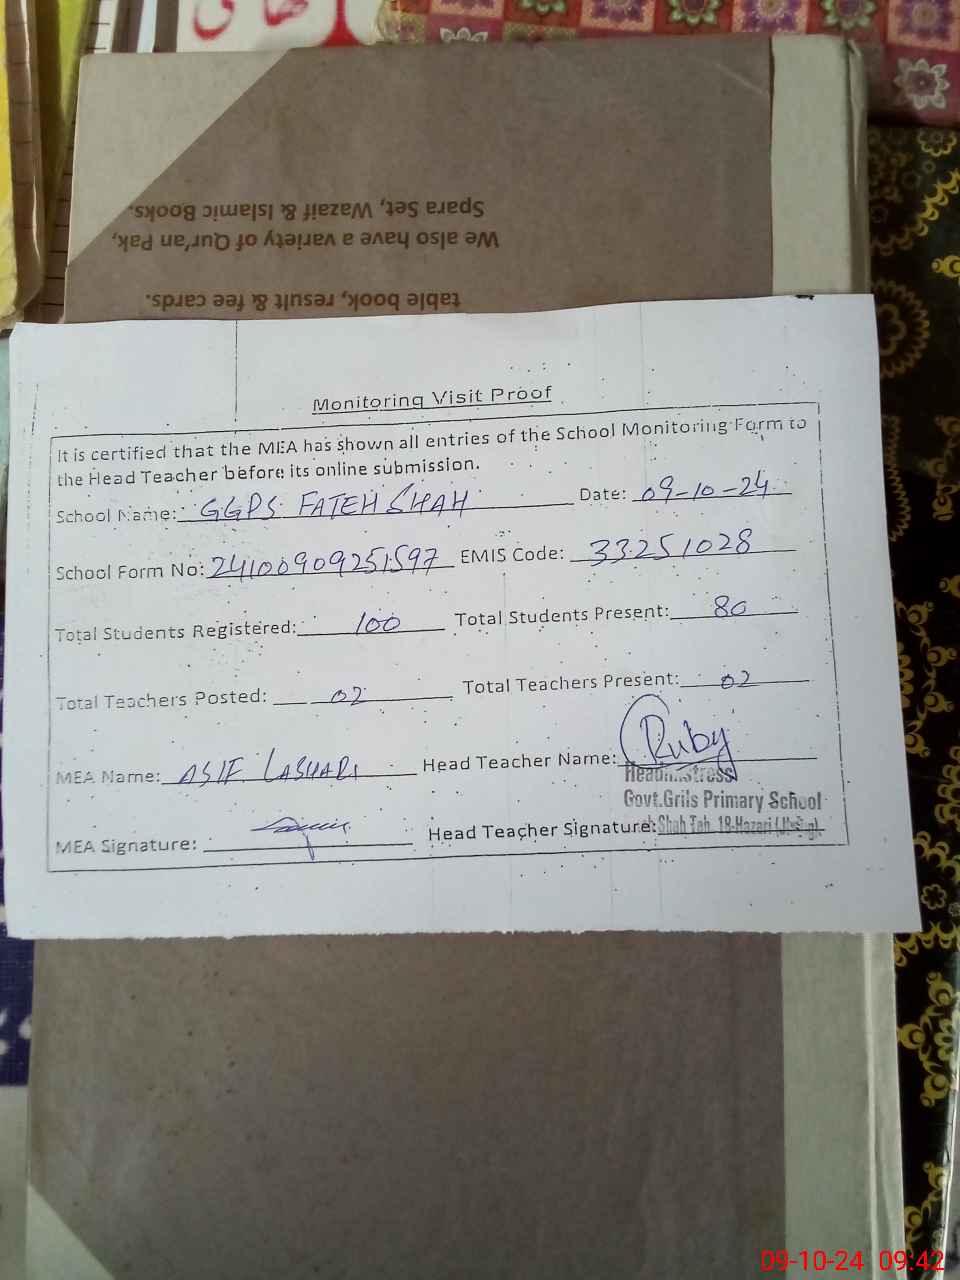 Spara Set, Wazaif & Islamic Books.
We also have a variety of Qur'an Pak,
table book, result & fee cards.
Monitoring Visit Proof
It is certified that the MEA has shown all entries of the School Monitoring Form to
the Head Teacher before its online submission.
School Name: GGPS FATEH SHAH Date: 09-10-24
School Form No: 24100909251597 EMIS Code: 33251028
Total Students Registered: 100 Total Students Present: 80
Total Teachers Posted: 02 Total Teachers Present: 02
MEA Name: ASIF LASHARI Head Teacher Name: Ruby
Headmistress
Govt.Grils Primary School
MEA Signature: Head Teacher Signature: Shah Teh. 18-Hazari
09-10-24 09:42